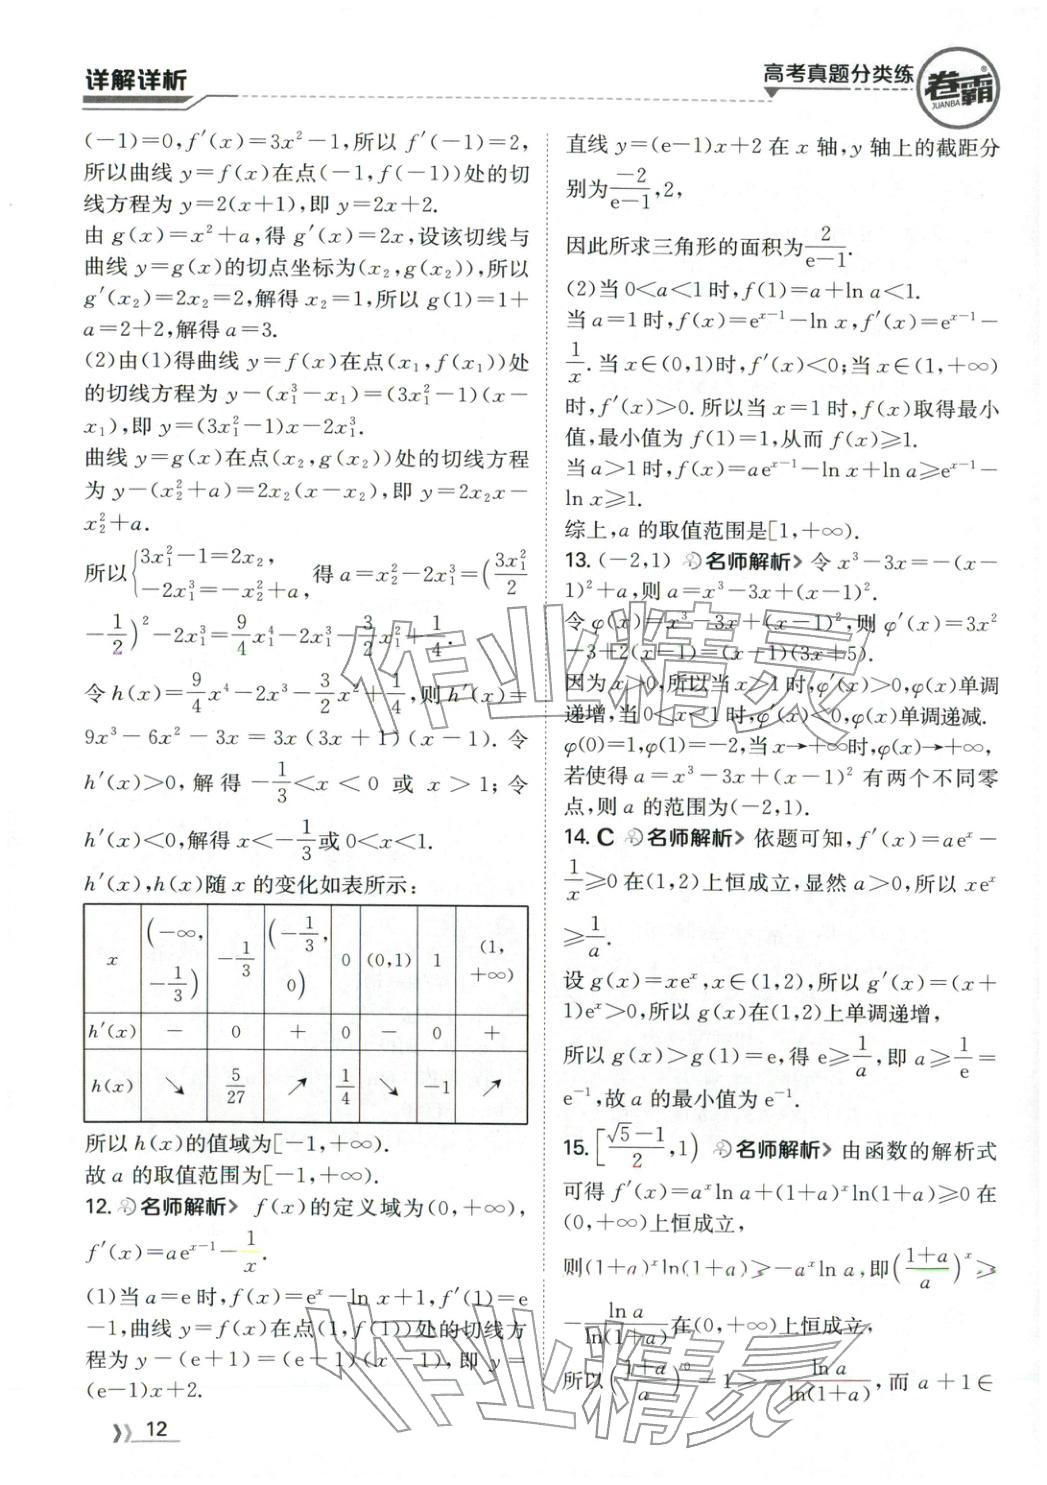 详解详析
高考真题分类练
卷霸
JUANBA
(-1)=0,f′(x)=3x²-1,所以 f′(-1)=2,
所以曲线 y=f(x)在点(-1,f(-1))处的切
线方程为 y=2(x+1),即 y=2x+2.
由 g(x)=x²+a,得 g′(x)=2x,设该切线与
曲线 y=g(x)的切点坐标为(x₂,g(x₂)),所以
g′(x₂)=2x₂=2,解得 x₂=1,所以 g(1)=1+
a=2+2,解得 a=3.
(2)由(1)得曲线 y=f(x)在点(x₁,f(x₁))处
的切线方程为 y-(x₁³-x₁)=(3x₁²-1)(x-
x₁),即 y=(3x₁²-1)x-2x₁³.
曲线 y=g(x)在点(x₂,g(x₂))处的切线方程
为 y-(x₂²+a)=2x₂(x-x₂),即 y=2x₂x-
x₂²+a.
所以{3x₁²-1=2x₂, -2x₁³=-x₂²+a, 得 a=x₂²-2x₁³=(3x₁²/2
-1/2)²-2x₁³=9/4x₁⁴-2x₁³-3/2x₁²+1/4.
令 h(x)=9/4x⁴-2x³-3/2x²+1/4,则 h′(x)=
9x³-6x²-3x=3x(3x+1)(x-1).令
h′(x)>0,解得-1/3<x<0 或 x>1;令
h′(x)<0,解得 x<-1/3或 0<x<1.
h′(x),h(x)随 x 的变化如表所示:
x (-∞,-1/3) -1/3 (-1/3,0) 0 (0,1) 1 (1,+∞)
h′(x) - 0 + 0 - 0 +
h(x) ↘ 5/27 ↗ 1/4 ↘ -1 ↗
所以 h(x)的值域为[-1,+∞).
故 a 的取值范围为[-1,+∞).
12. 名师解析 f(x)的定义域为(0,+∞),
f′(x)=aeˣ⁻¹-1/x.
(1)当 a=e 时,f(x)=eˣ-ln x+1,f′(1)=e
-1,曲线 y=f(x)在点(1,f(1))处的切线方
程为 y-(e+1)=(e-1)(x-1),即 y=
(e-1)x+2.
12
直线 y=(e-1)x+2 在 x 轴,y 轴上的截距分
别为-2/(e-1),2,
因此所求三角形的面积为2/(e-1).
(2)当 0<a<1 时,f(1)=a+ln a<1.
当 a=1 时,f(x)=eˣ⁻¹-ln x,f′(x)=eˣ⁻¹-
1/x.当 x∈(0,1)时,f′(x)<0;当 x∈(1,+∞)
时,f′(x)>0.所以当 x=1 时,f(x)取得最小
值,最小值为 f(1)=1,从而 f(x)≥1.
当 a>1 时,f(x)=aeˣ⁻¹-ln x+ln a≥eˣ⁻¹-
ln x≥1.
综上,a 的取值范围是[1,+∞).
13. (-2,1) 名师解析 令 x³-3x=-(x-
1)²+a,则 a=x³-3x+(x-1)².
令 φ(x)=x³-3x+(x-1)²,则 φ′(x)=3x²
-3+2(x-1)=(x-1)(3x+5).
因为 x>0,所以当 x>1 时,φ′(x)>0,φ(x)单调
递增,当 0<x<1 时,φ′(x)<0,φ(x)单调递减.
φ(0)=1,φ(1)=-2,当 x→+∞时,φ(x)→+∞,
若使得 a=x³-3x+(x-1)² 有两个不同零
点,则 a 的范围为(-2,1).
14. C 名师解析 依题可知,f′(x)=aeˣ-
1/x≥0 在(1,2)上恒成立,显然 a>0,所以 xeˣ
≥1/a.
设 g(x)=xeˣ,x∈(1,2),所以 g′(x)=(x+
1)eˣ>0,所以 g(x)在(1,2)上单调递增,
所以 g(x)>g(1)=e,得 e≥1/a,即 a≥1/e=
e⁻¹,故 a 的最小值为 e⁻¹.
15. [(√5-1)/2,1) 名师解析 由函数的解析式
可得 f′(x)=aˣln a+(1+a)ˣln(1+a)≥0 在
(0,+∞)上恒成立,
则(1+a)ˣln(1+a)≥-aˣln a,即((1+a)/a)ˣ≥
-ln a/ln(1+a)在(0,+∞)上恒成立,
所以((1+a)/a)⁰=1≥-ln a/ln(1+a),而 a+1∈
作业精灵
作业精灵